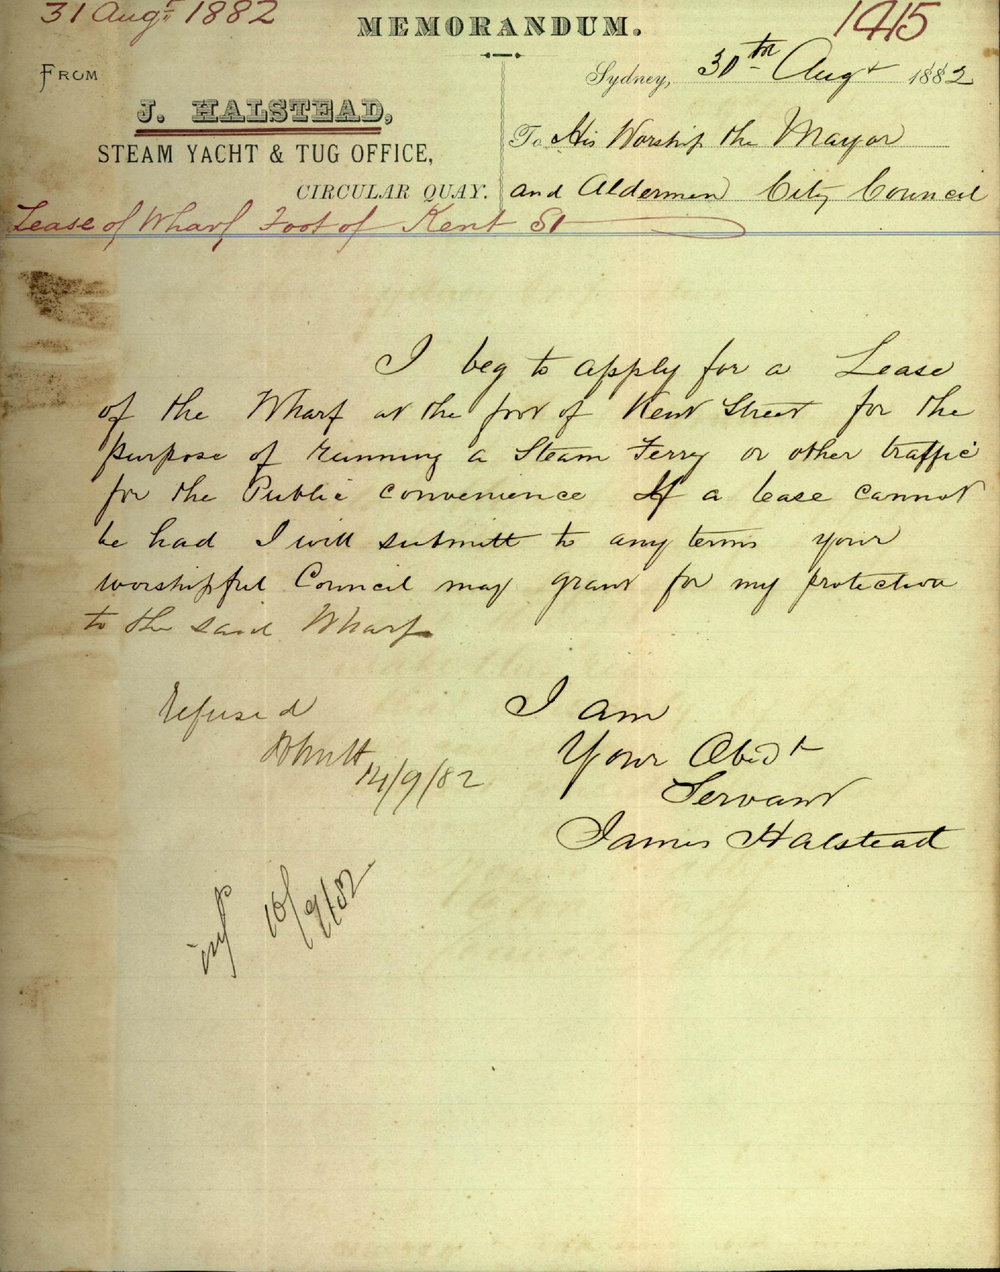 31 Augt 1882
MEMORANDUM.
1415
FROM
Sydney, 30th Augt 1882
J. HALSTEAD,
To His Worship the Mayor
STEAM YACHT & TUG OFFICE,
CIRCULAR QUAY.
and Aldermen City Council
Lease of Wharf Foot of Kent St
I beg to apply for a Lease
of the Wharf at the foot of Kent Street for the
purpose of running a Steam Ferry or other traffic
for the Public convenience If a lease cannot
be had I will submitt to any terms your
worshipful Council may grant for my protection
to the said Wharf
I am
Refused
Your Obedt
14/9/82
Servant
James Halstead
inf 16/9/82